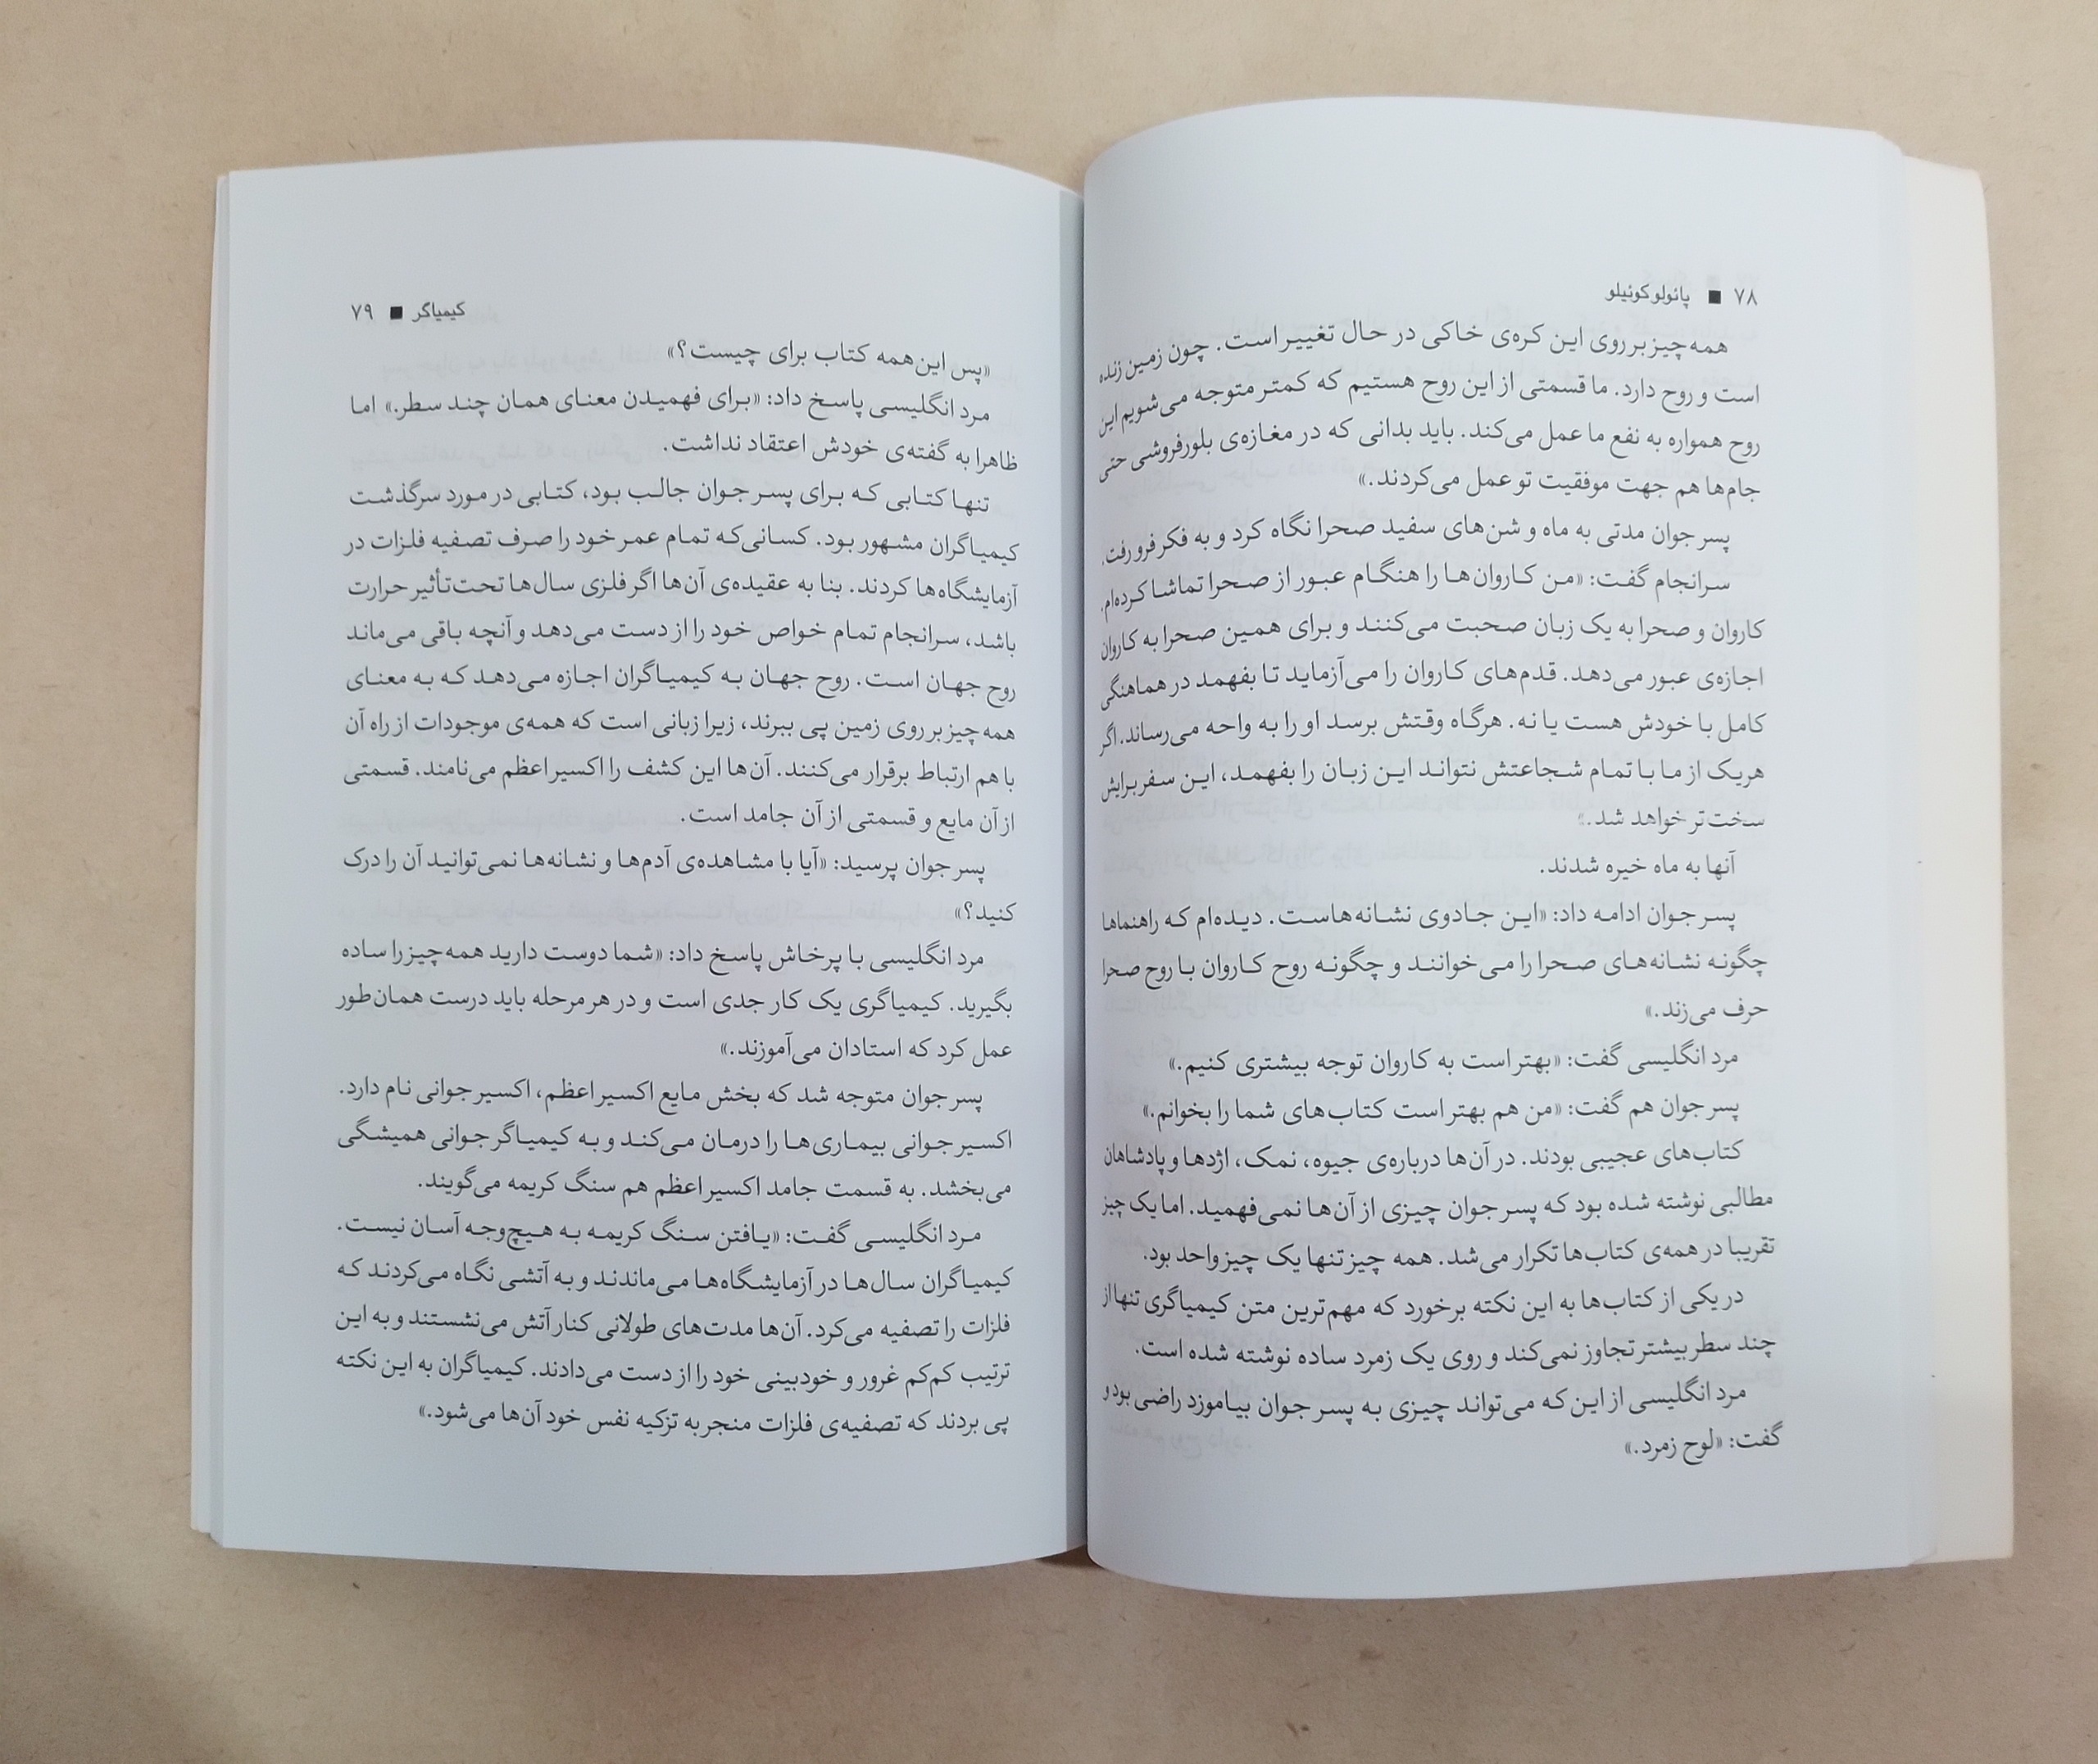 ۷۸ ■ پائولو کوئیلو
همه‌چیز بر روی این کره‌ی خاکی در حال تغییر است. چون زمین زنده
است و روح دارد. ما قسمتی از این روح هستیم که کمتر متوجه می‌شویم این
روح همواره به نفع ما عمل می‌کند. باید بدانی که در مغازه‌ی بلورفروشی حتی
جام‌ها هم جهت موفقیت تو عمل می‌کردند.»
پسر جوان مدتی به ماه و شن‌های سفید صحرا نگاه کرد و به فکر فرو رفت.
سرانجام گفت: «من کاروان‌ها را هنگام عبور از صحرا تماشا کرده‌ام.
کاروان و صحرا به یک زبان صحبت می‌کنند و برای همین صحرا به کاروان
اجازه‌ی عبور می‌دهد. قدم‌های کاروان را می‌آزماید تا بفهمد در هماهنگی
کامل با خودش هست یا نه. هرگاه وقتش برسد او را به واحه می‌رساند. اگر
هریک از ما با تمام شجاعتش نتواند این زبان را بفهمد، این سفر برایش
سخت‌تر خواهد شد.»
آنها به ماه خیره شدند.
پسر جوان ادامه داد: «این جادوی نشانه‌هاست. دیده‌ام که راهنماها
چگونه نشانه‌های صحرا را می‌خوانند و چگونه روح کاروان با روح صحرا
حرف می‌زند.»
مرد انگلیسی گفت: «بهتر است به کاروان توجه بیشتری کنیم.»
پسر جوان هم گفت: «من هم بهتر است کتاب‌های شما را بخوانم.»
کتاب‌های عجیبی بودند. در آن‌ها درباره‌ی جیوه، نمک، اژدها و پادشاهان
مطالبی نوشته شده بود که پسر جوان چیزی از آن‌ها نمی‌فهمید. اما یک چیز
تقریبا در همه‌ی کتاب‌ها تکرار می‌شد. همه چیز تنها یک چیز واحد بود.
در یکی از کتاب‌ها به این نکته برخورد که مهم‌ترین متن کیمیاگری تنها از
چند سطر بیشتر تجاوز نمی‌کند و روی یک زمرد ساده نوشته شده است.
مرد انگلیسی از این که می‌تواند چیزی به پسر جوان بیاموزد راضی بود و
گفت: «لوح زمرد.»
کیمیاگر ■ ۷۹
«پس این‌همه کتاب برای چیست؟»
مرد انگلیسی پاسخ داد: «برای فهمیدن معنای همان چند سطر.» اما
ظاهرا به گفته‌ی خودش اعتقاد نداشت.
تنها کتابی که برای پسر جوان جالب بود، کتابی در مورد سرگذشت
کیمیاگران مشهور بود. کسانی‌که تمام عمر خود را صرف تصفیه فلزات در
آزمایشگاه‌ها کردند. بنا به عقیده‌ی آن‌ها اگر فلزی سال‌ها تحت‌تأثیر حرارت
باشد، سرانجام تمام خواص خود را از دست می‌دهد و آنچه باقی می‌ماند
روح جهان است. روح جهان به کیمیاگران اجازه می‌دهد که به معنای
همه چیز بر روی زمین پی ببرند، زیرا زبانی است که همه‌ی موجودات از راه آن
با هم ارتباط برقرار می‌کنند. آن‌ها این کشف را اکسیر اعظم می‌نامند. قسمتی
از آن مایع و قسمتی از آن جامد است.
پسر جوان پرسید: «آیا با مشاهده‌ی آدم‌ها و نشانه‌ها نمی‌توانید آن را درک
کنید؟»
مرد انگلیسی با پرخاش پاسخ داد: «شما دوست دارید همه‌چیز را ساده
بگیرید. کیمیاگری یک کار جدی است و در هر مرحله باید درست همان‌طور
عمل کرد که استادان می‌آموزند.»
پسر جوان متوجه شد که بخش مایع اکسیر اعظم، اکسیر جوانی نام دارد.
اکسیر جوانی بیماری‌ها را درمان می‌کند و به کیمیاگر جوانی همیشگی
می‌بخشد. به قسمت جامد اکسیر اعظم هم سنگ کریمه می‌گویند.
مرد انگلیسی گفت: «یافتن سنگ کریمه به هیچ‌وجه آسان نیست.
کیمیاگران سال‌ها در آزمایشگاه‌ها می‌ماندند و به آتشی نگاه می‌کردند که
فلزات را تصفیه می‌کرد. آن‌ها مدت‌های طولانی کنار آتش می‌نشستند و به این
ترتیب کم‌کم غرور و خودبینی خود را از دست می‌دادند. کیمیاگران به این نکته
پی بردند که تصفیه‌ی فلزات منجر به تزکیه نفس خود آن‌ها می‌شود.»